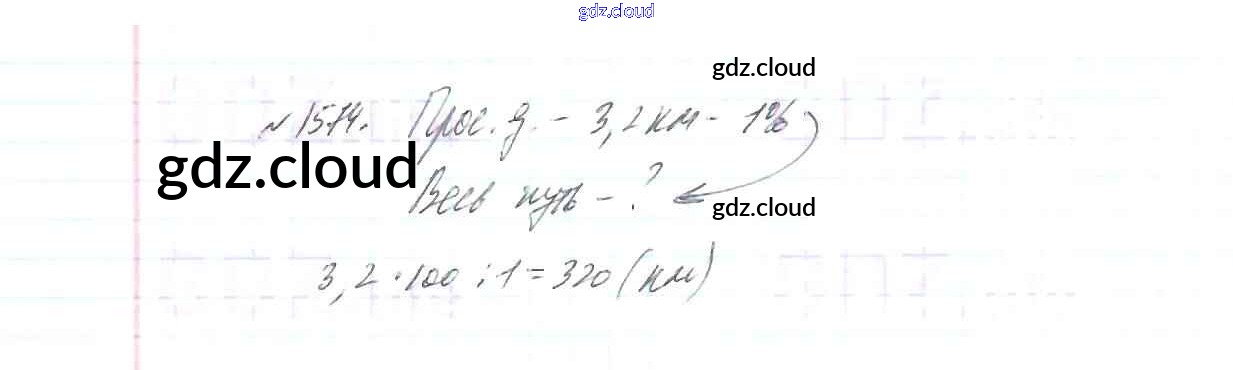 gdz.cloud
gdz.cloud
№1574. Прос. д. - 3,2 км - 1%
gdz.cloud
Весь путь - ?
gdz.cloud
3,2 · 100 : 1 = 320 (км)